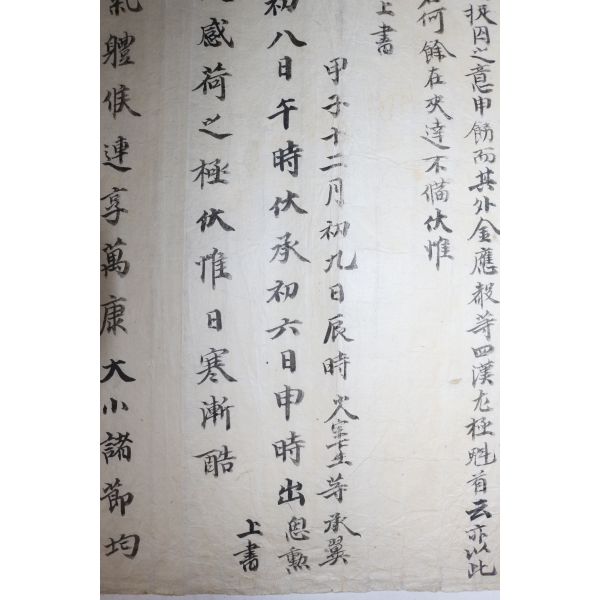 捉囚之意申飭而其外金應等四漢尤極魁首云亦以此
何餘在夾達不備伏惟
上書
甲子十二月初九日辰時 下生等承翼
恩勲
上書
初八日午時伏承初六日申時出
感荷之極伏惟日寒漸酷
氣體候連享萬康大小諸節均